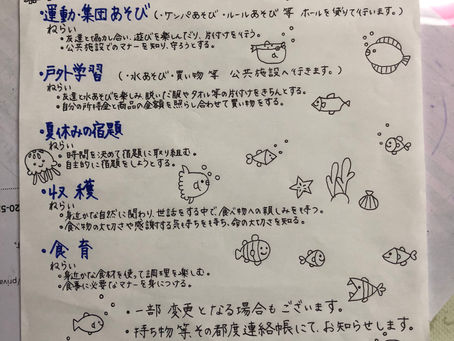 ・運動・集団あそび(・ケンパあそび・ルールあそび 等 ボールを使って行います。)
ねらい
・友達と協力し合い、遊びを楽しんだり、片付けを行う。
・公共施設でのマナーを知り、守ろうとする。
・戸外学習(・水あそび・買い物 等 公共施設へ行きます。)
ねらい
・友達と水あそびを楽しみ、脱いだ服やタオル等の片付けをきちんとする。
・自分の所持金と商品の金額を照らし合わせて買い物をする。
・夏休みの宿題
ねらい
・時間を決めて宿題に取り組む。
・自主的に宿題をしようとする。
・収穫
ねらい
・身近かな自然に関わり、世話をする中で食べ物への親しみを持つ。
・食べ物の大切さや感謝する気持ちを持ち、命の大切さを知る。
・食育
ねらい
・身近かな食材を使って調理を楽しむ。
・食事に必要なマナーを身につける。
・一部変更となる場合もございます。
・持ち物等、その都度連絡帳にて、お知らせします。